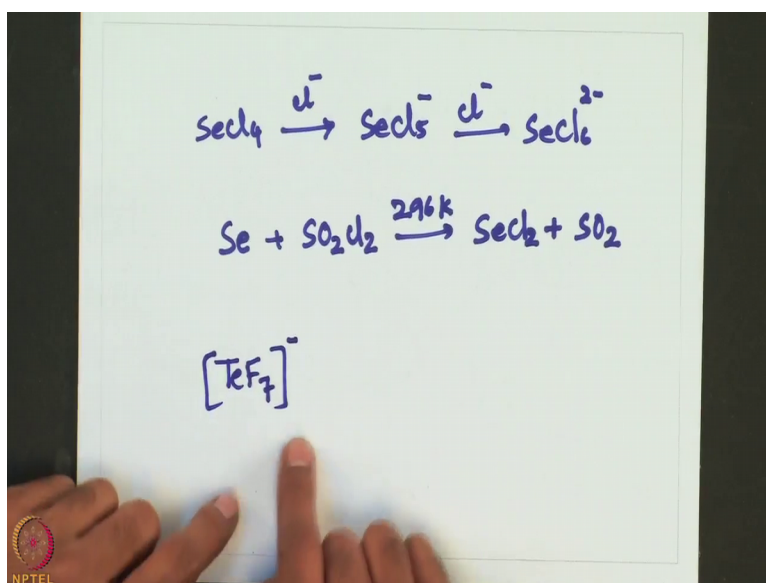 SeCl₄ —Cl⁻→ SeCl₅⁻ —Cl⁻→ SeCl₆²⁻
Se + SO₂Cl₂ —296K→ SeCl₂ + SO₂
[TeF₇]⁻
NPTEL